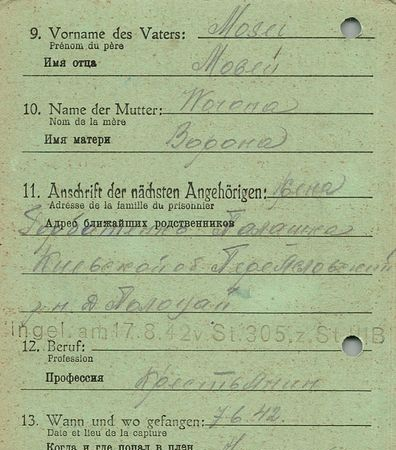 9. Vorname des Vaters: Mosei
Prénom du père
Имя отца Мовей
10. Name der Mutter: Worona
Nom de la mère
Имя матери Ворона
11. Anschrift der nächsten Angehörigen: жена
Adresse de la famille du prisonnier
Адрес ближайших родственников Палашка
Киевской об Переяславский
р-н д
ingel. am 17.8.42 v. St. 305, z. St.
12. Beruf:
Profession
Профессия Крестьянин
13. Wann und wo gefangen: 7.6.42.
Date et lieu de la capture
Когда и где попал в плен